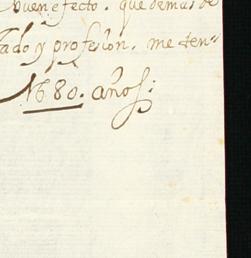 buen efecto. que demas de
tado y profesion. me ten=
1680. años;